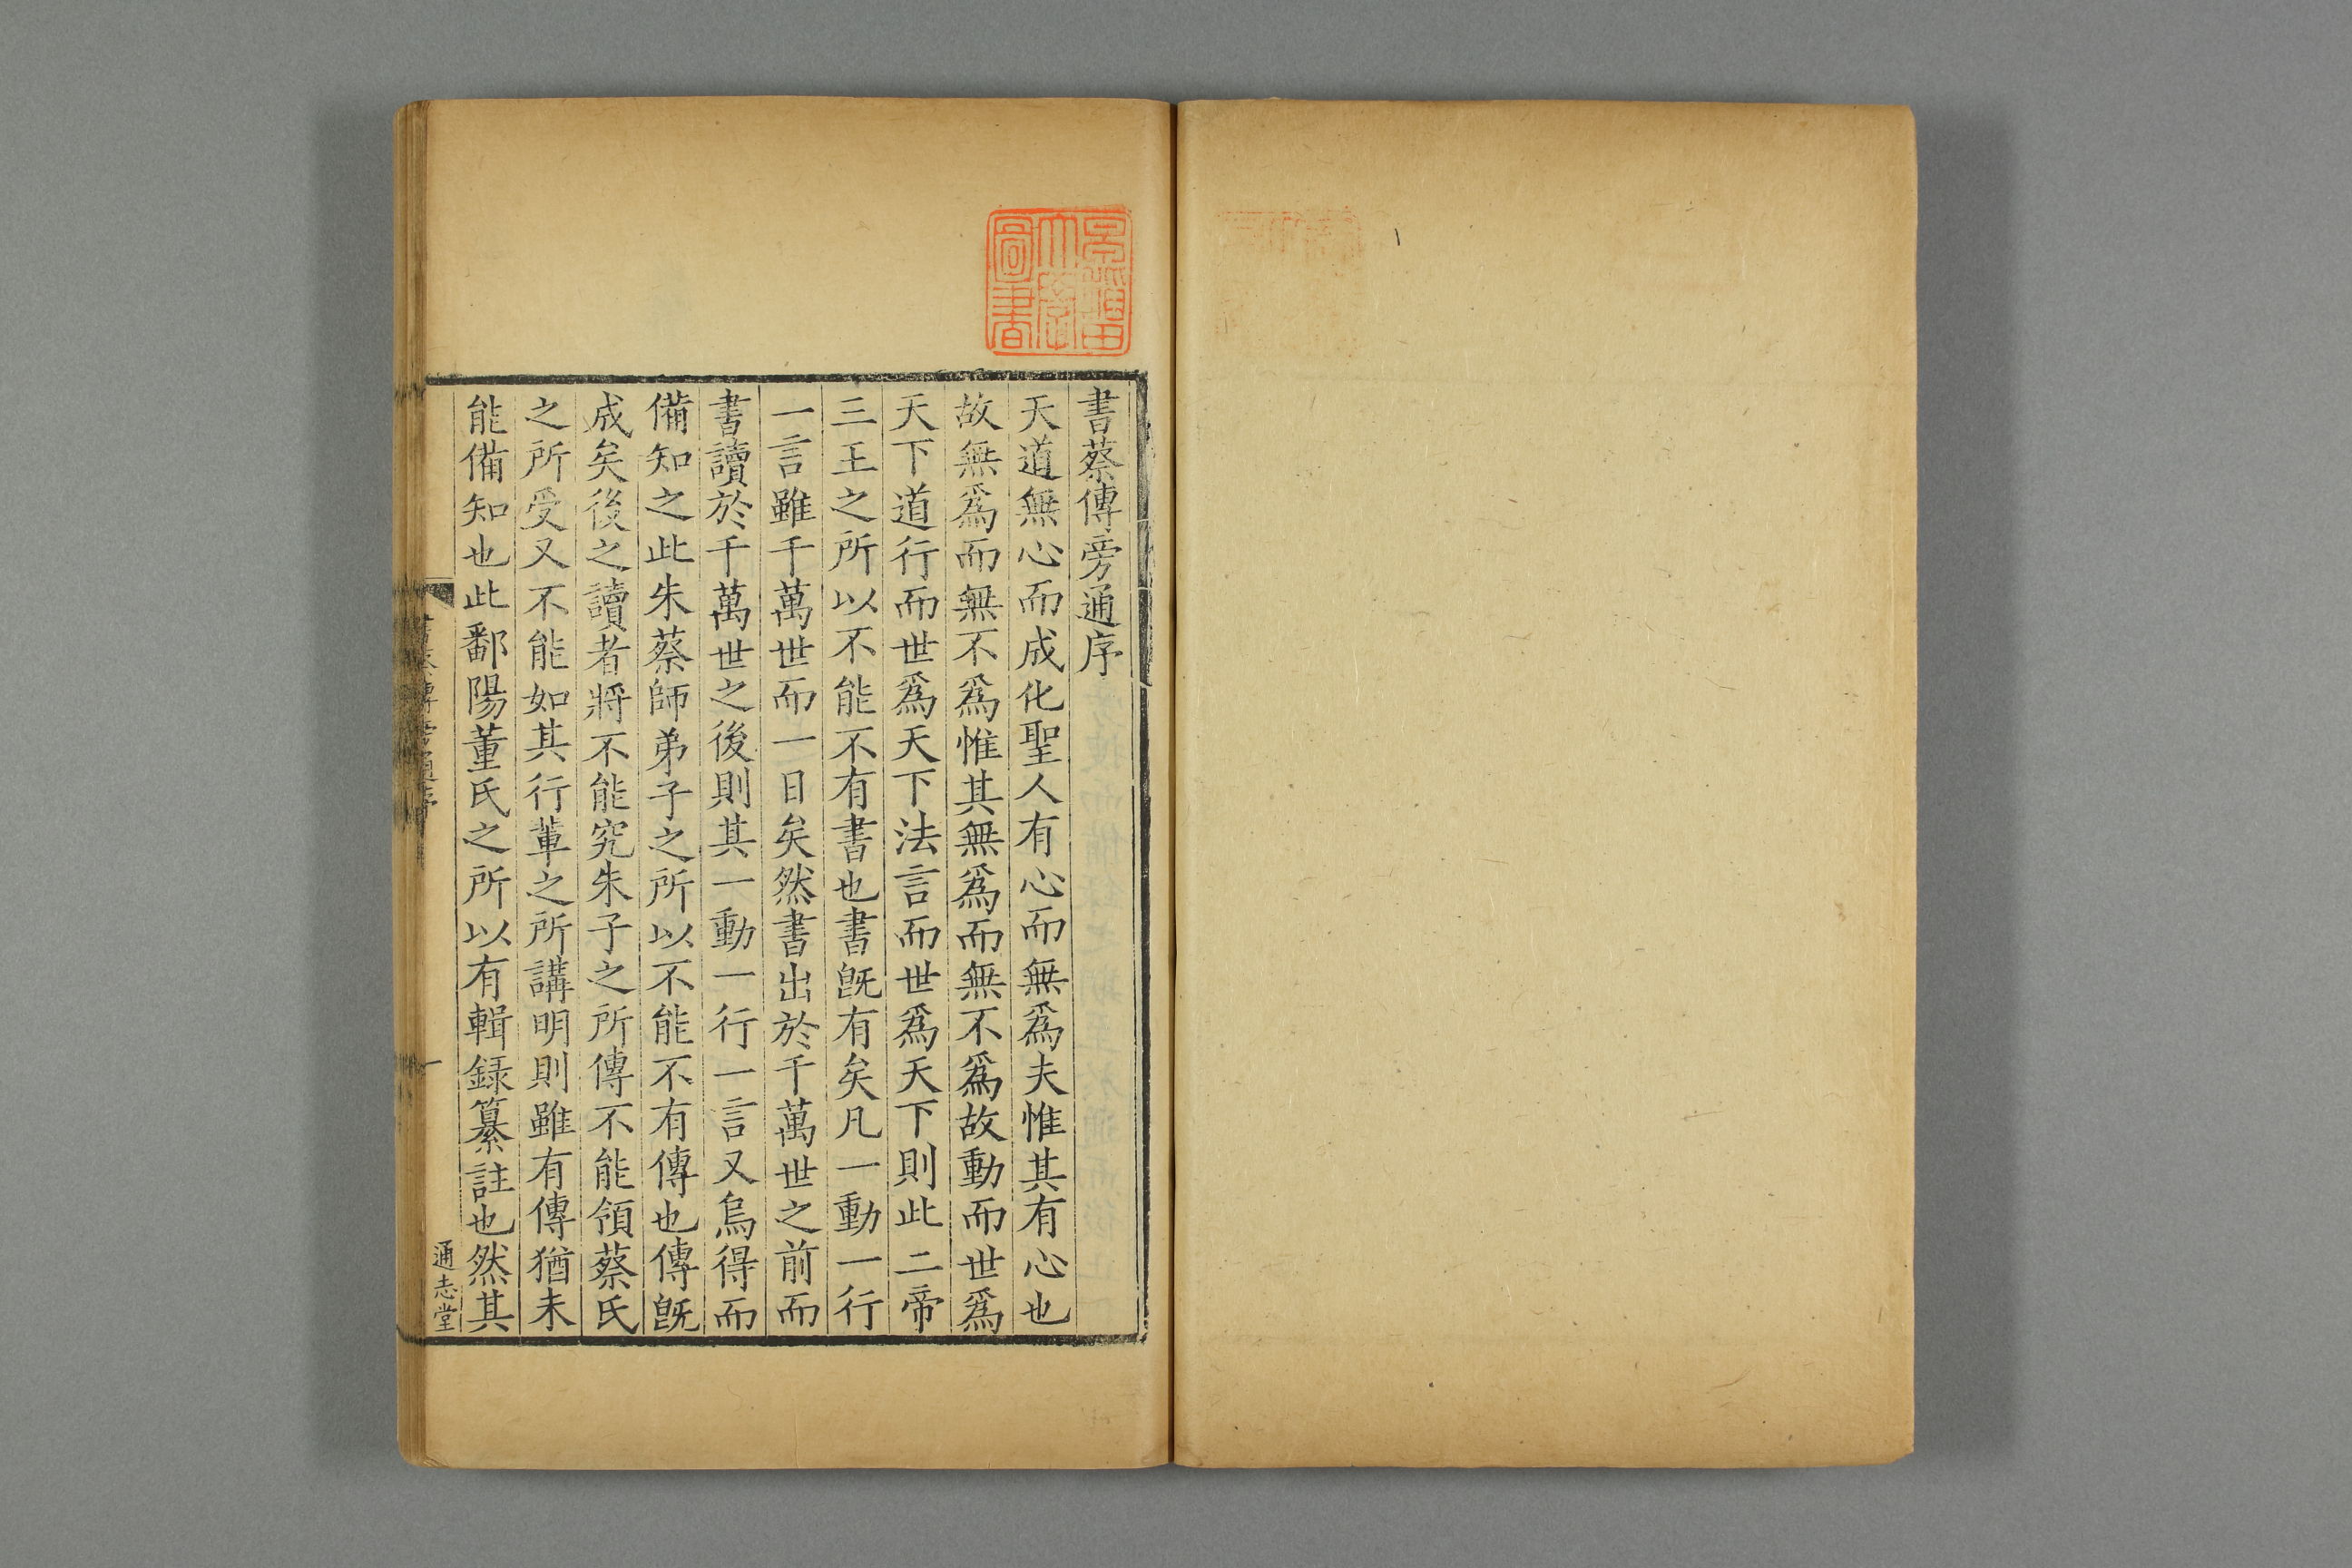 書蔡傳旁通序
天道無心而成化聖人有心而無爲夫惟其有心也
故無爲而無不爲惟其無爲而無不爲故動而世爲
天下道行而世爲天下法言而世爲天下則此二帝
三王之所以不能不有書也書旣有矣凡一動一行
一言雖千萬世而一日矣然書出於千萬世之前而
書讀於千萬世之後則其一動一行一言又烏得而
備知之此朱蔡師弟子之所以不能不有傳也傳旣
成矣後之讀者將不能究朱子之所傳不能領蔡氏
之所受又不能如其行輩之所講明則雖有傳猶未
能備知也此鄱陽董氏之所以有輯録纂註也然其
書蔡傳旁通序
一
通志堂
早稲田
大學
圖書